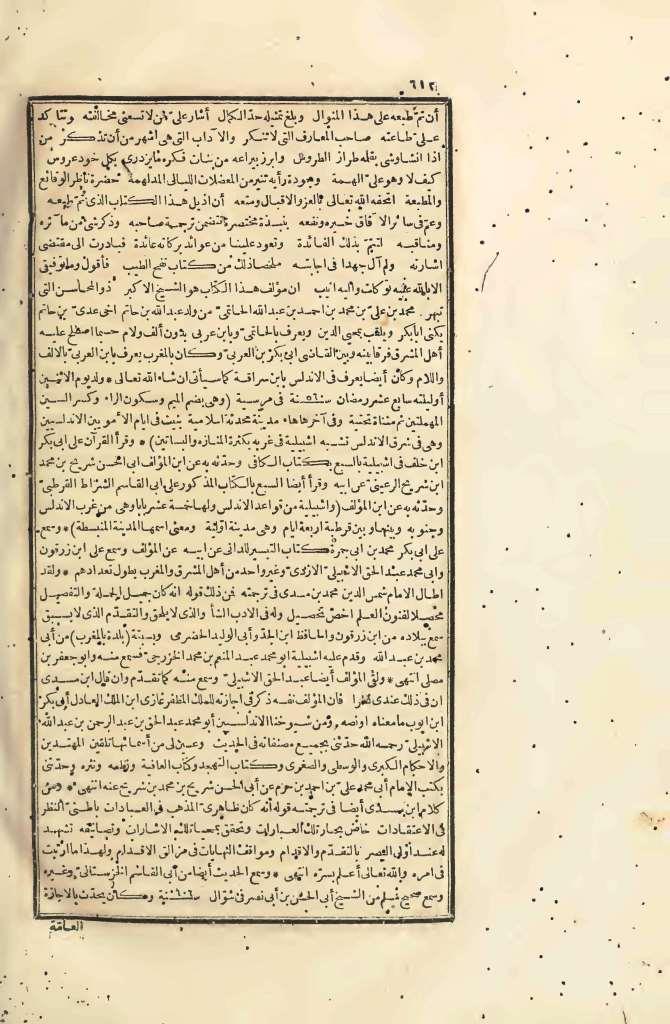 ٦١٢
أن تم طبعه على هذا المنوال وبلغ تمثيله حد الكمال أشار على من لا تسعنى مخالفته وتتأكد
على طاعته صاحب المعارف التى لا تنكر والآداب التى هى أشهر من أن تذكر من
اذا انشا وشى بقلمه طراز الطروس وابرز ببراعه من بنات فكره ما يزدرى بكل خود عروس
كيف لا وهو على الهمة وبجودة رأيه تنير من المعضلات الليالى المدلهمة حضرة ناظر الوقائع
والمطبعة اتحفه الله تعالى بالعز والاقبال ومتعه أن اذيل هذا الكتاب الذى تم طبعه
وعم فى سائر الآفاق خبره ونفعه بنبذة مختصرة تتضمن ترجمة صاحبه وذكر شئ من مآثره
ومناقبه لتتم بذلك الفائدة وتعود علينا من عوائد بركاته عائدة فبادرت الى مقتضى
اشارته ولم آل جهدا فى اجابته ملخصا ذلك من كتاب نفح الطيب فأقول وما توفيقى
الا بالله عليه توكلت واليه انيب ان مؤلف هذا الكتاب هو الشيخ الاكبر ذو المحاسن التى
تبهر محمد بن على بن محمد بن احمد بن عبد الله الحاتمى من ولد عبد الله بن حاتم اخى عدى بن حاتم
يكنى ابا بكر ويلقب بمحيى الدين ويعرف بالحاتمى وبابن عربى بدون ألف ولام حسبما اصطلح عليه
أهل المشرق فرقا بينه وبين القاضى ابى بكر بن العربى وكان بالمغرب يعرف بابن العربى بالالف
واللام وكان أيضا يعرف فى الاندلس بابن سراقة كما سيأتى ان شاء الله تعالى * ولد يوم الاثنين
أو ليلته سابع عشر رمضان سنة فى مرسية (وهى بضم الميم وسكون الراء وكسر السين
المهملتين ثم مثناة تحتية وفى آخرها هاء مدينة محدثة اسلامية بنيت فى ايام الأمويين الاندلسيين
وهى فى شرق الاندلس تشبه اشبيلية فى غربه بكثرة المنازه والبساتين) * وقرأ القرآن على ابى بكر
ابن خلف فى اشبيلية بالسبع بكتاب الكافى وحدثه به عن ابن المؤلف ابى الحسن شريح بن محمد
ابن شريح الرعينى عن ابيه وقرأ أيضا السبع بالكتاب المذكور على ابى القاسم الشراط القرطبى
وحدثه به عن ابن المؤلف (واشبيلية من قواعد الاندلس ولها خمسة عشر بابا وهى من غرب الاندلس
وجنوبه وبينها وبين قرطبة اربعة ايام وهى مدينة اولية ومعنى اسمها المدينة المنبسطة) * وسمع
على ابى بكر محمد بن ابى جمرة كتاب التيسير للدانى عن ابيه عن المؤلف وسمع على ابن زرقون
وابى محمد عبد الحق الاشبيلى الازدى وغير واحد من أهل المشرق والمغرب يطول تعدادهم * ولقد
اطال الامام شمس الدين محمد بن مسدى فى ترجمته فمن ذلك قوله انه كان جميل الجملة والتفصيل
محصلا لفنون العلم اخص تحصيل وله فى الادب الشأو الذى لا يلحق والتقدم الذى لا يسبق
سمع ببلاده من ابن زرقون والحافظ ابن الجد وأبى الوليد الحضرمى وبسبتة (بلدة بالمغرب) من أبى
محمد بن عبد الله وقدم عليه اشبيلية ابو محمد عبد المنعم بن محمد الخزرجى فسمع منه وابو جعفر بن
مصلى انتهى * ولقى المؤلف أيضا عبد الحق الاشبيلى وسمع منه كما تقدم وان قال ابن مسدى
ان فى ذلك عندى نظرا فان المؤلف نفسه ذكر فى اجازته للملك المظفر غازى ابن الملك العادل أبى بكر
ابن ايوب ما معناه او نصه ومن شيوخنا الاندلسيين أبو محمد عبد الحق بن عبد الرحمن بن عبد الله
الاشبيلى رحمه الله حدثنى بجميع مصنفاته فى الحديث وعين لى من أسمائها تلقين المهتدين
والاحكام الكبرى والوسطى والصغرى وكتاب التهجد وكتاب العاقبة ونظمه ونثره وحدثنى
بكتب الإمام أبى محمد على بن احمد بن حزم عن أبى الحسن شريح بن محمد بن شريح عنه انتهى * ومن
كلام ابن مسدى أيضا فى ترجمته قوله أنه كان ظاهرى المذهب فى العبادات باطنى النظر
فى الاعتقادات خاض بحار تلك العبارات وتحقق بمحيا تلك الاشارات وتصانيفه تشهد
له عند أولى البصر بالتقدم والاقدام ومواقف النهايات فى مزالق الاقدام ولهذا ما ارتبت
فى امره والله تعالى أعلم بسره انتهى * وسمع الحديث أيضا من أبى القاسم الخزستانى وغيره
وسمع صحيح مسلم من الشيخ أبى الحسن بن أبى نصر فى شوال سنة وكان يحدث بالاجازة
العامة